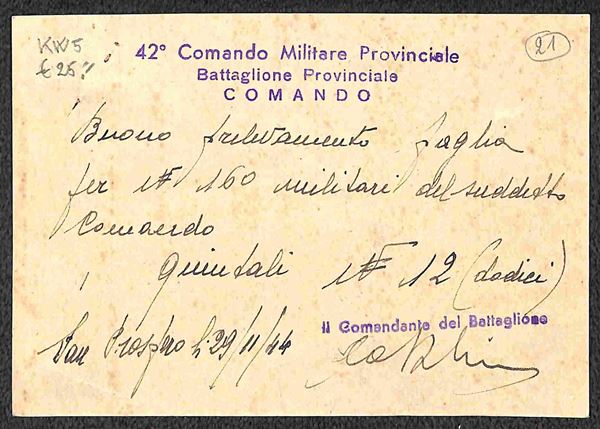 KW5
€ 25.=
21
42° Comando Militare Provinciale
Battaglione Provinciale
COMANDO
Buono prelevamento paglia
per N° 160 militari del suddetto
Comando
Quintali N° 12 (dodici)
San Prospero li 29/11/44
Il Comandante del Battaglione